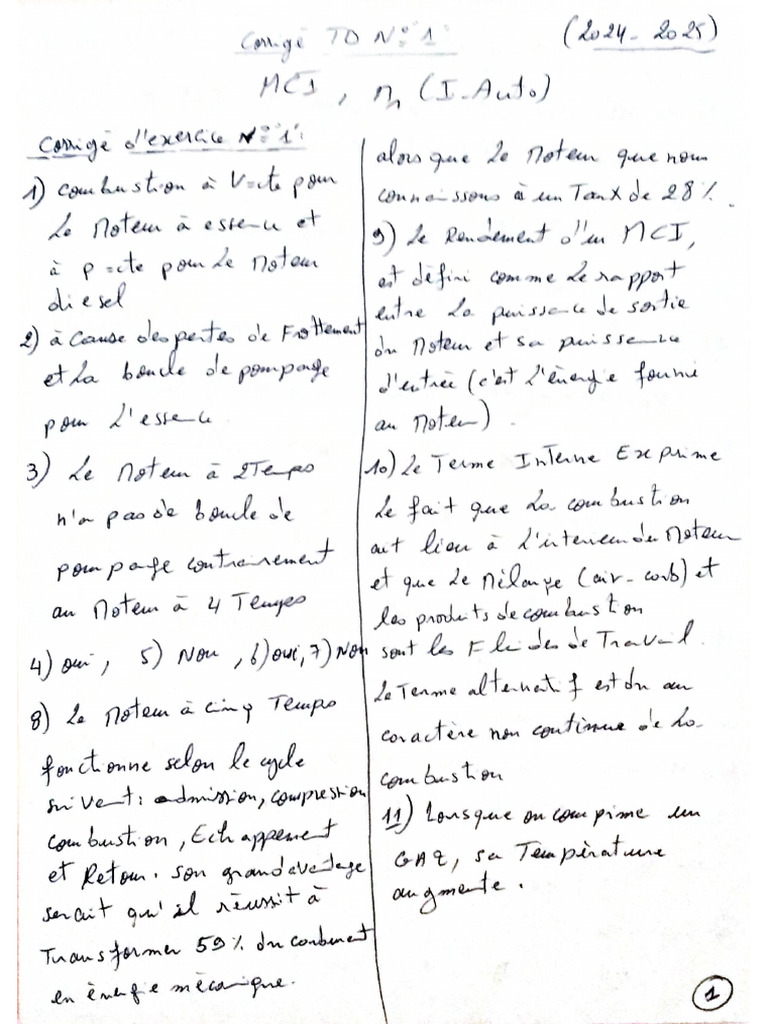 Corrigé TD N°"1":
(2024-2025)
MCI, (I-Auto)
Corrigé d'exercice N°"1":
1) Combustion à V=cte pour
Le Moteur à essence et
à p=cte pour Le Moteur
diesel
2) à cause des pertes de Frottement
et La boucle de pompage
pour L'essence.
3) Le Moteur à 2Temps
n'a pas de boucle de
pompage contrairement
au Moteur à 4 Temps
4) oui, 5) Non, 6) oui, 7) Non
8) Le Moteur à cinq Temps
fonctionne selon le cycle
suivent: admission, compression
combustion, Echappement
et Retour. son grand avantage
serait qu'il réussit à
Transformer 59% du carburent
en énergie mécanique.
alors que Le Moteur que nous
connaissons à un Taux de 28%.
9) Le Rendement d'un MCI,
est défini comme Le rapport
entre La puissance de sortie
du Moteur et sa puissance
d'entrée (c'est L'énergie fournie
au Moteur).
10) Le Terme Interne Exprime
Le fait que La combustion
ait lieu à L'interieur du Moteur
et que Le Mélange (air-carb) et
les produits de combustion
sont les Fluides de Travail.
Le Terme alternatif est du au
caractère non continue de La
combustion
11) Lorsque on comprime un
GAZ, sa Température
augmente.
1